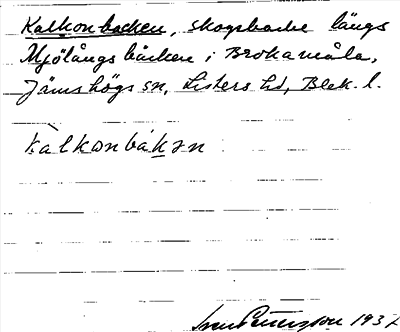 Kalkonbacken, skogsbacke längs
Mjölångsbäcken i Brokamåla,
Jämshögs sn, Listers hd, Blek. l.
kàlkonbákən
Pettersson 193